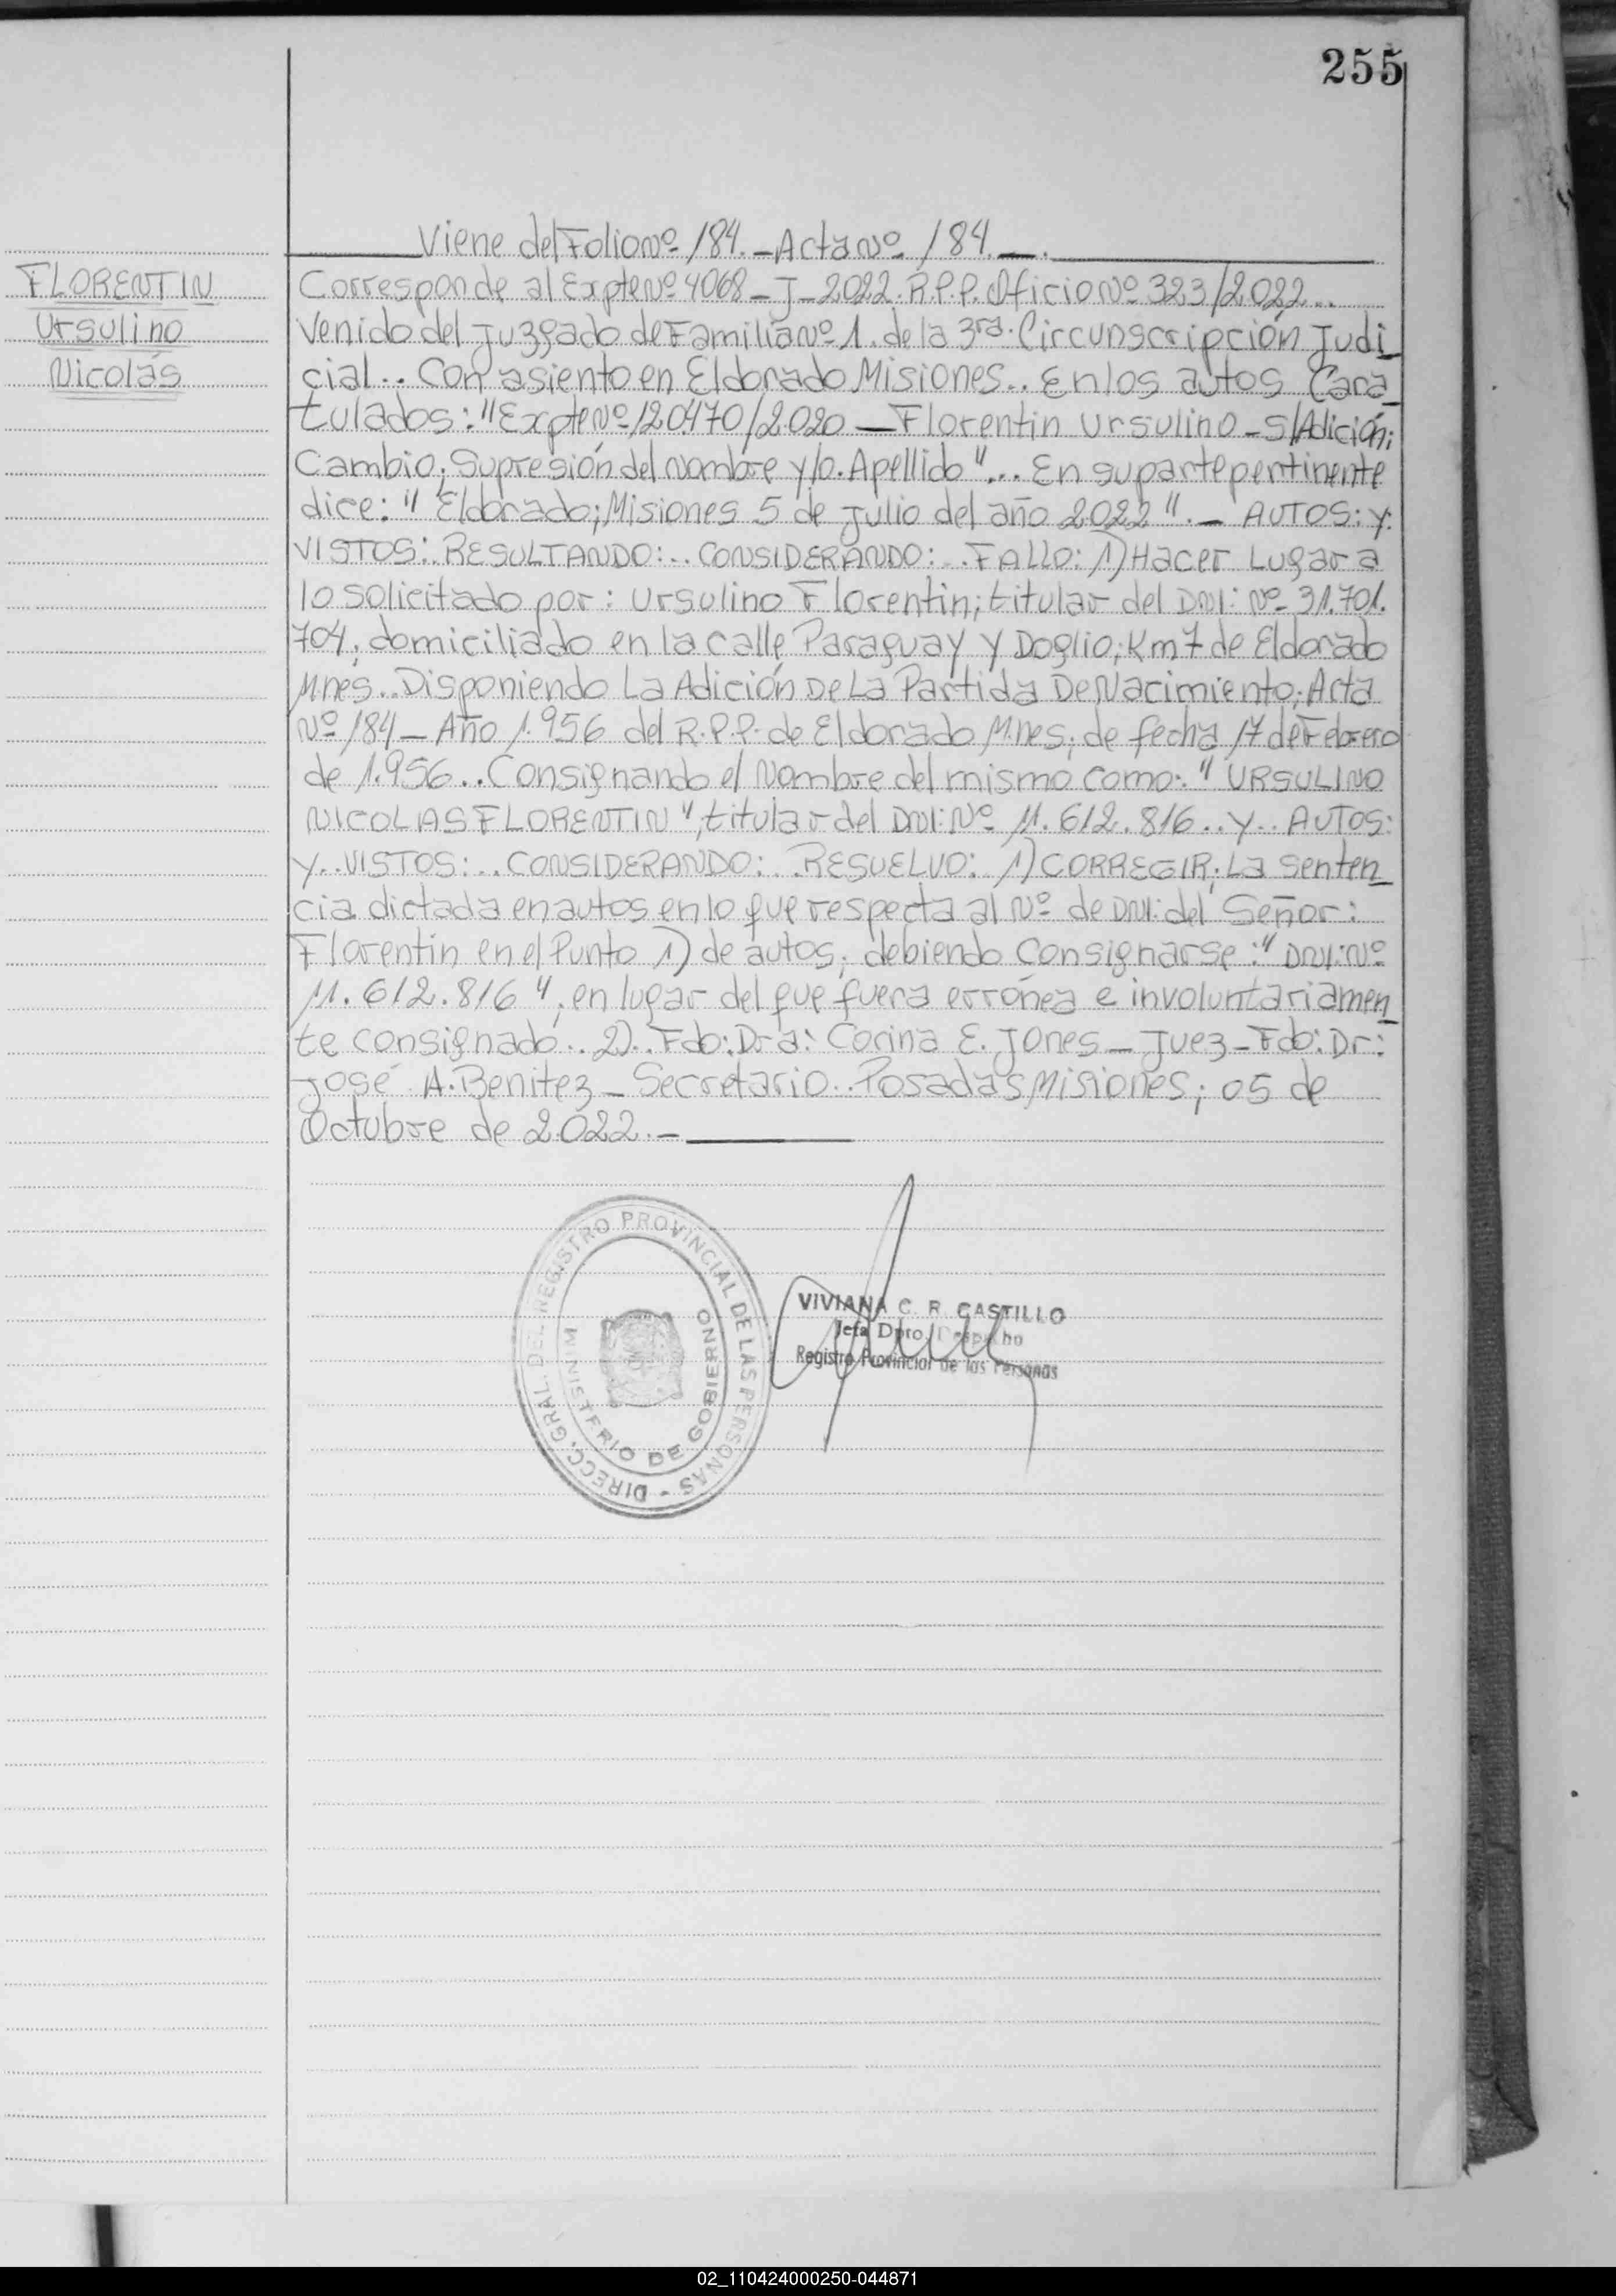 255
Viene del Folio Nº 184. - Acta Nº 184. — .
FLORENTIN
Ursulino
Nicolás
Corresponde al Expte Nº 4068 - J - 2022. R.P.P. Oficio Nº 323/2022...
Venido del Juzgado de Familia Nº 1. de la 3ra. Circunscripción Judi_
cial.. Con asiento en Eldorado Misiones.. En los autos Cara_
tulados: "Expte Nº 120470/2.020 — Florentin Ursulino - S/Adición;
Cambio; Supresión del Nombre y/o. Apellido"... En su parte pertinente
dice: " Eldorado; Misiones 5 de Julio del año 2022". - AUTOS: Y:
VISTOS:. RESULTANDO:.. CONSIDERANDO:.. FALLO: 1) Hacer Lugar a
lo solicitado por: Ursulino Florentin; titular del DNI: Nº 31.701.
704; domiciliado en la calle Paraguay y Doglio; Km 7 de Eldorado
Mnes.. Disponiendo La Adición De La Partida De Nacimiento; Acta
Nº 184 - Año 1.956 del R.P.P. de Eldorado Mnes; de fecha 17 de Febrero
de 1.956.. Consignando el Nombre del mismo como: " URSULINO
NICOLAS FLORENTIN", titular del DNI: Nº 11.612.816.. Y.. AUTOS:
Y.. VISTOS:.. CONSIDERANDO:.. RESUELVO: 1) CORREGIR; La senten_
cia dictada en autos en lo que respecta al Nº de DNI: del Señor:
Florentin en el Punto 1) de autos; debiendo Consignarse: " DNI: Nº
11.612.816 ", en lugar del que fuera errónea e involuntariamen_
te consignado.. 2).. Fdo: Dra: Corina E. Jones - Juez - Fdo: Dr:
José A. Benitez - Secretario.. Posadas Misiones; 05 de
Octubre de 2.022. -
DIRECC. GRAL. DEL REGISTRO PROVINCIAL DE LAS PERSONAS -
MINISTERIO DE GOBIERNO
VIVIANA C. R. CASTILLO
Jefa Dpto. Despacho
Registro Provincial de las Personas
02_110424000250-044871